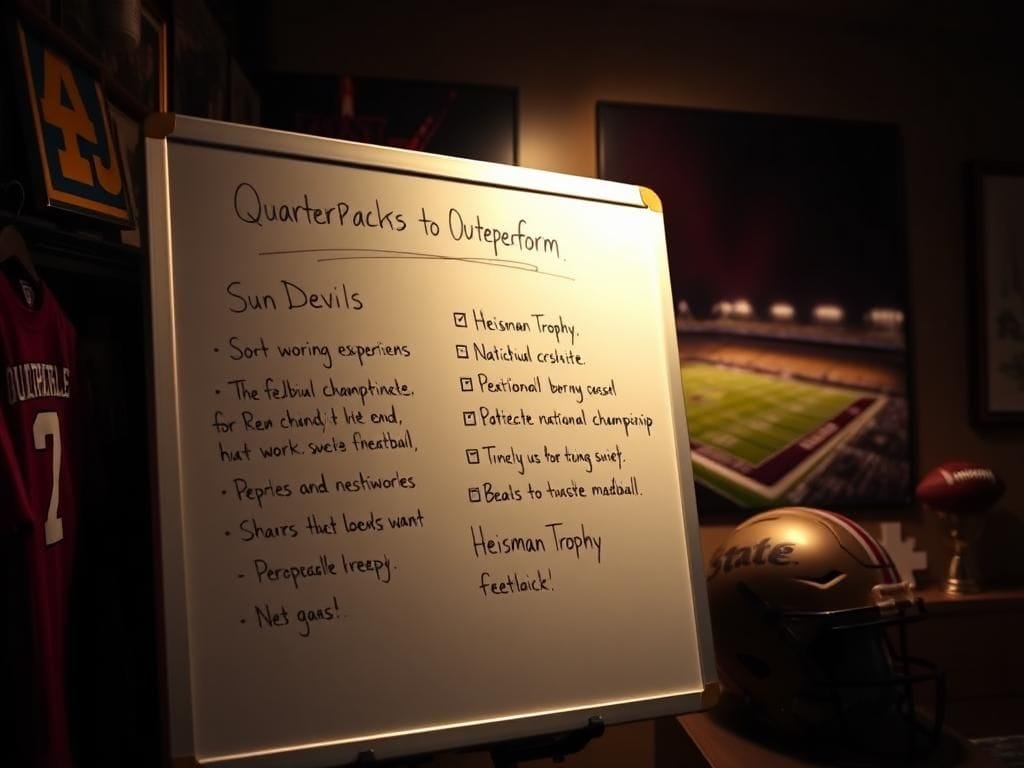 QuarterPacks to Outeperform.
Sun Devils
• Sort woring esperiens
• The felbiul champtinate.
for Rew chand, t lite end,
hiat work. swcte fneatball,
• Peprles and nestiwories
• Shairs that loeds want
- Percpcaslle lreepy.
• Net gans!
Heisman Trophy.
Natictiul crslsite.
Pextionall berny cassl
Patiecte national champicnip
Tinely us for tiung suiet.
Beals to tuaste madball.
Heisman Trophy
feetlaick!
7
State